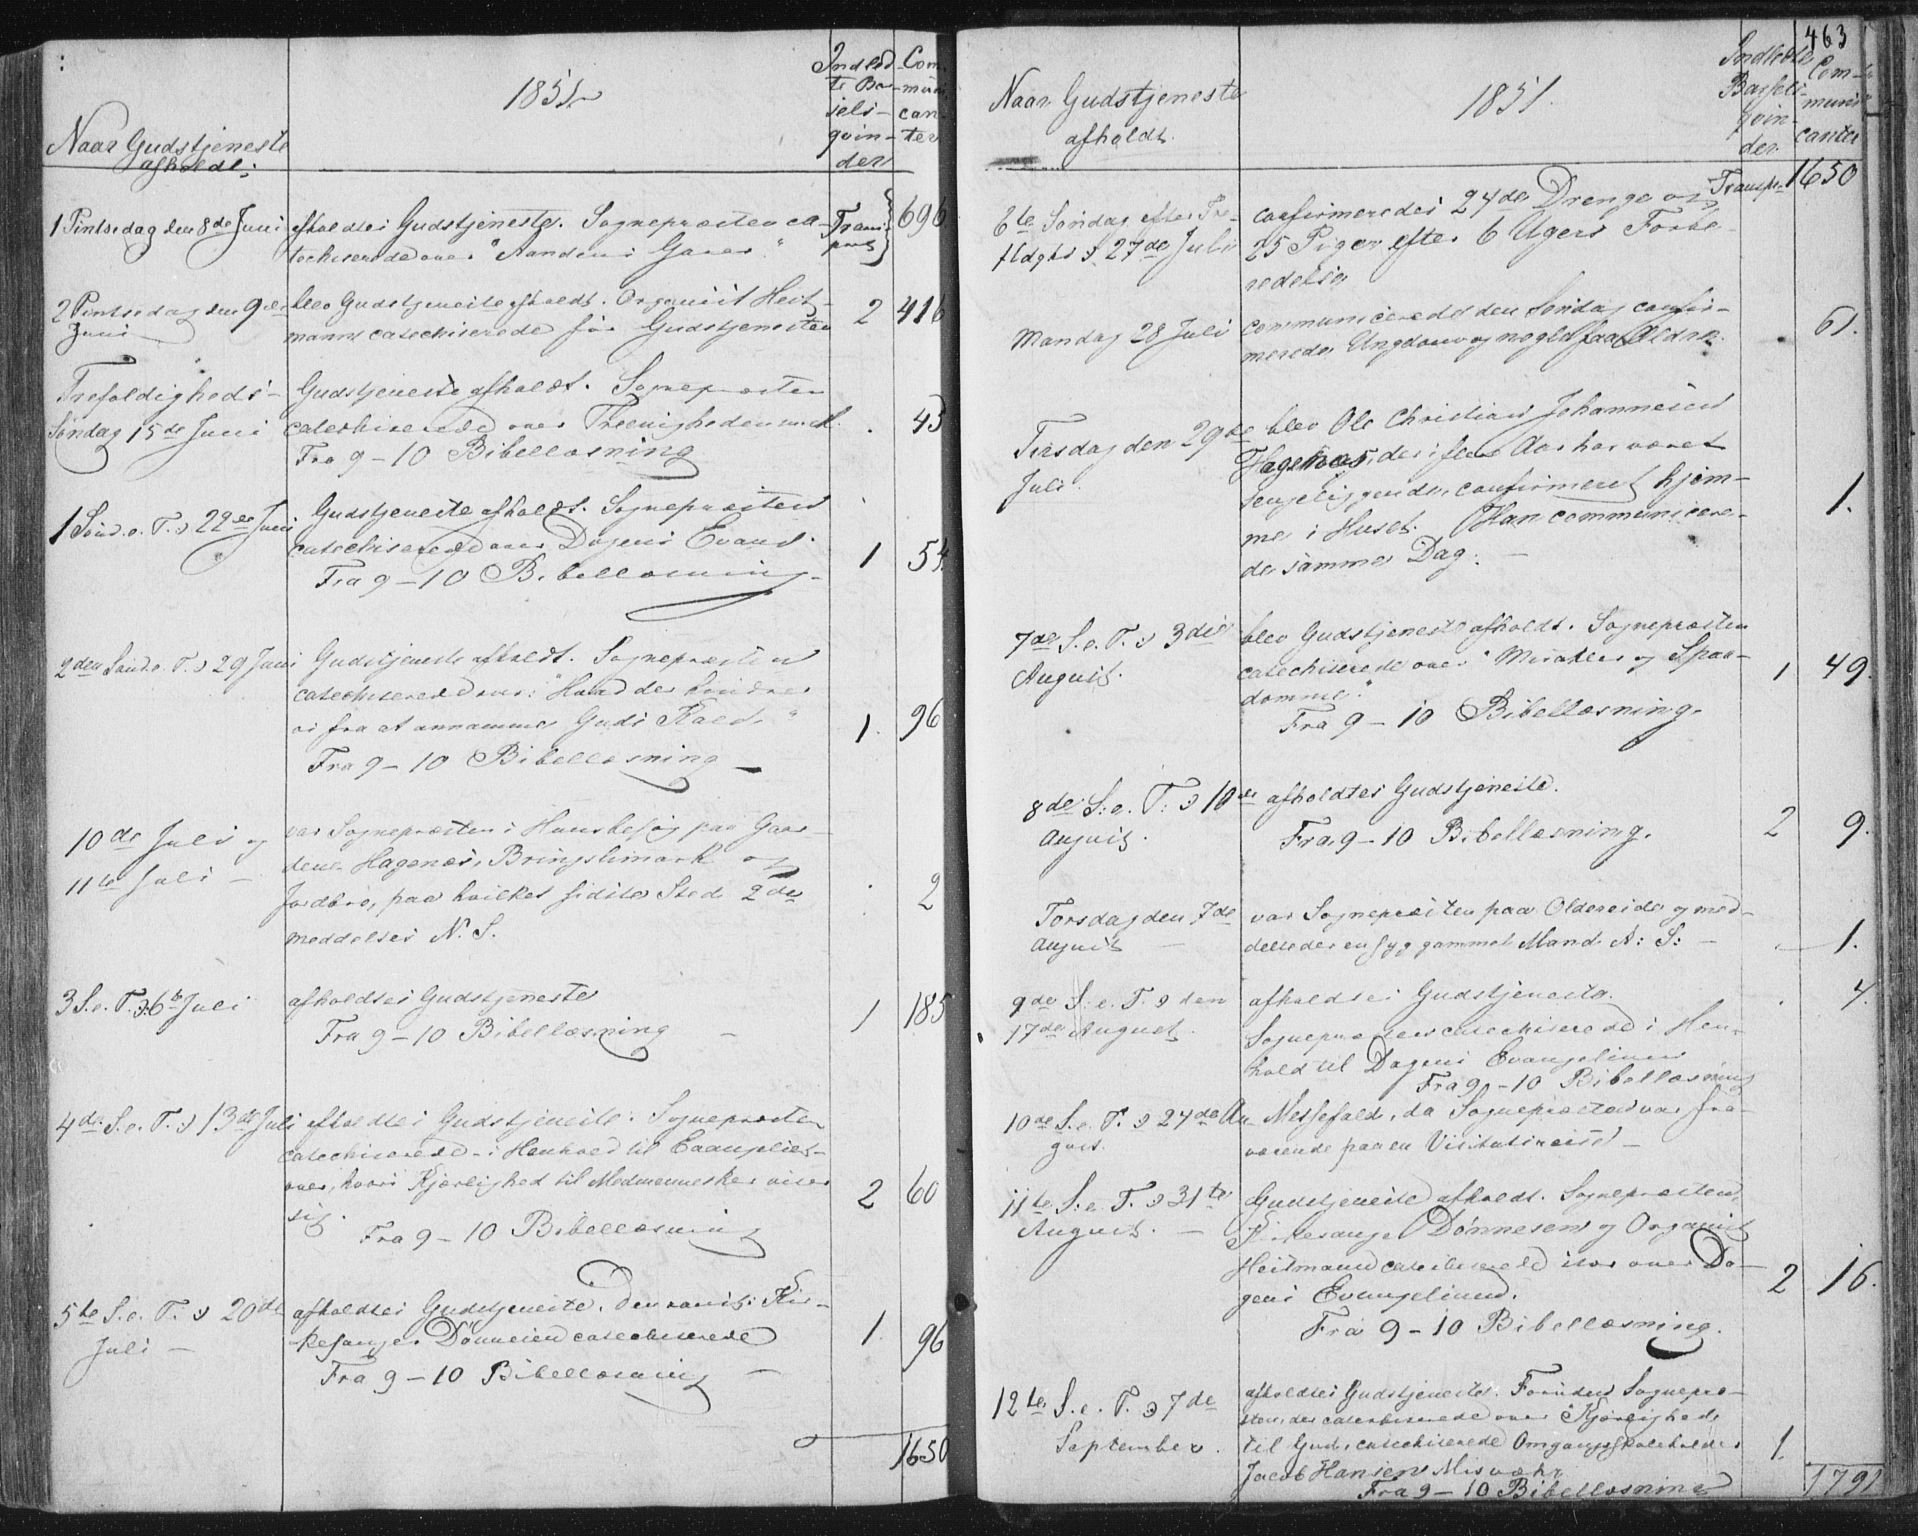 1851
Naar Gudstjeneste
afholdt:
Indled-
te Bar-
sels-
qvin-
der
Com-
muni-
can-
ter
1 Pintsedag den 8de Juni afholdtes Gudstjeneste. Sognepræsten ca- Trans- 696
techiserede over "Aandens Gaver." port
2 Pintsedag den 9de blev Gudstjeneste afholdt. Organist Heit- 2 416
Juni mann catechiserede før Gudstjenesten
Trefoldigheds- Gudstjeneste afholdt. Sognepræsten
Søndag 15de Juni catechiserede over Treenigheden . 45
Fra 9-10 Bibellæsning
1 Sønd. e. T. d 22de Juni Gudstjeneste afholdt. Sognepræsten
catechiserede over Dagens Evang. 1 54.
Fra 9-10 Bibellæsning
2den Sønd. e. T. d 29 Juni Gudstjeneste afholdt. Sognepræsten
catechiserede over: "Hvad der hindrer
os fra at annamme Guds Kald." 1. 96
Fra 9-10 Bibellæsning
10de Juli og var Sognepræsten i Huusbesøg paa Gaar-
11te Juli dene Hagenæs, Bringslimark og
Jordbro, paa hvilket sidste Sted 2de . 2
meddeltes N. S.
3 S. e. T. d: 6te Juli afholdtes Gudstjeneste
Fra 9-10 Bibellæsning 1 185
4de S. e. T. d 13de Juli afholdtes Gudstjeneste. Sognepræsten
catechiserede i Henhold til Evangeliet
over, hvori Kjærlighed til Medmennesker viser 2 60
sig.
Fra 9-10 Bibellæsning
5te S. e. T. d 20de afholdtes Gudstjeneste. Den const: Kir-
Juli kesanger Dønnesen catechiserede 1. 96
Fra 9-10 Bibellæsning
1650
463
Naar Gudstjeneste
afholdt.
1851.
Indledte
Barsels-
qvin-
der.
Com-
muni-
canter
Transp. 1650
6te Søndag efter Tre- confirmeredes 24de Drenge og
fldghd d 27de Juli 25 Piger efter 6 Ugers Forbe-
redelse
Mandag 28 Juli communicerede den Søndag confir- . 61.
merede Ungdom og nogle faa Ældre.
Tirsdag den 29de blev Ole Christian Johannesen
Juli. Hagenæs, der i flere Aar har været
sengeliggende, confirmeret hjem- 1.
me i Huset. Han communicere-
de samme Dag.
7de S. e. T. d 3die blev Gudstjeneste afholdt. Sognepræsten
August. catechiserede over "Mirakler og Spaa- 1 49.
domme."
Fra 9-10 Bibellæsning.
8de S: e. T: d 10de afholdtes Gudstjeneste.
August. Fra 9-10 Bibellæsning. 2 9.
Torsdag den 7de var Sognepræsten paa Oldereide og med-
August deelte der en syg gammel Mand A: S: . 1.
9de S. e. T. d den afholdtes Gudstjeneste. . 4.
17de August. Sognepræsten catechiserede i Hen-
hold til Dagens Evangelium
Fra 9-10 Bibellæsning
10de S. e. T. d 24de Au- Messefald, da Sognepræsten var fra-
gust. værende paa en Visitatsreise
11te S. e. T. d 31te Gudstjeneste afholdt. Sognepræsten,
August. Kirkesanger Dønnesen og Organist
Heitmann catechiserede over Da- 2 16.
gens Evangelium.
Fra 9-10 Bibellæsning.
12te S. e. T. d 7de afholdtes Gudstjeneste. Foruden Sognepræ-
September. sten, der catechiserede over "Kjærlighed
til Gud", catechiserede Omgangsskoleholder 1.
Jacob Hansen Misvær
Fra 9-10 Bibellæsning 1791